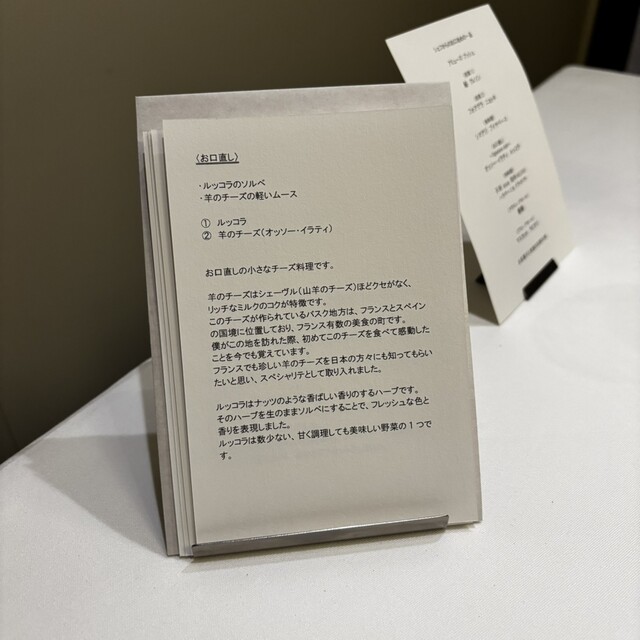 〈お口直し〉
・ルッコラのソルベ
・羊のチーズの軽いムース
① ルッコラ
② 羊のチーズ(オッソー・イラティ)
お口直しの小さなチーズ料理です。
羊のチーズはシェーヴル(山羊のチーズ)ほどクセがなく、
リッチなミルクのコクが特徴です。
このチーズが作られているバスク地方は、フランスとスペイン
の国境に位置しており、フランス有数の美食の町です。
僕がこの地を訪れた際、初めてこのチーズを食べて感動した
ことを今でも覚えています。
フランスでも珍しい羊のチーズを日本の方々にも知ってもらい
たいと思い、スペシャリテとして取り入れました。
ルッコラはナッツのような香ばしい香りのするハーブです。
そのハーブを生のままソルベにすることで、フレッシュな色と
香りを表現しました。
ルッコラは数少ない、甘く調理しても美味しい野菜の1つで
す。